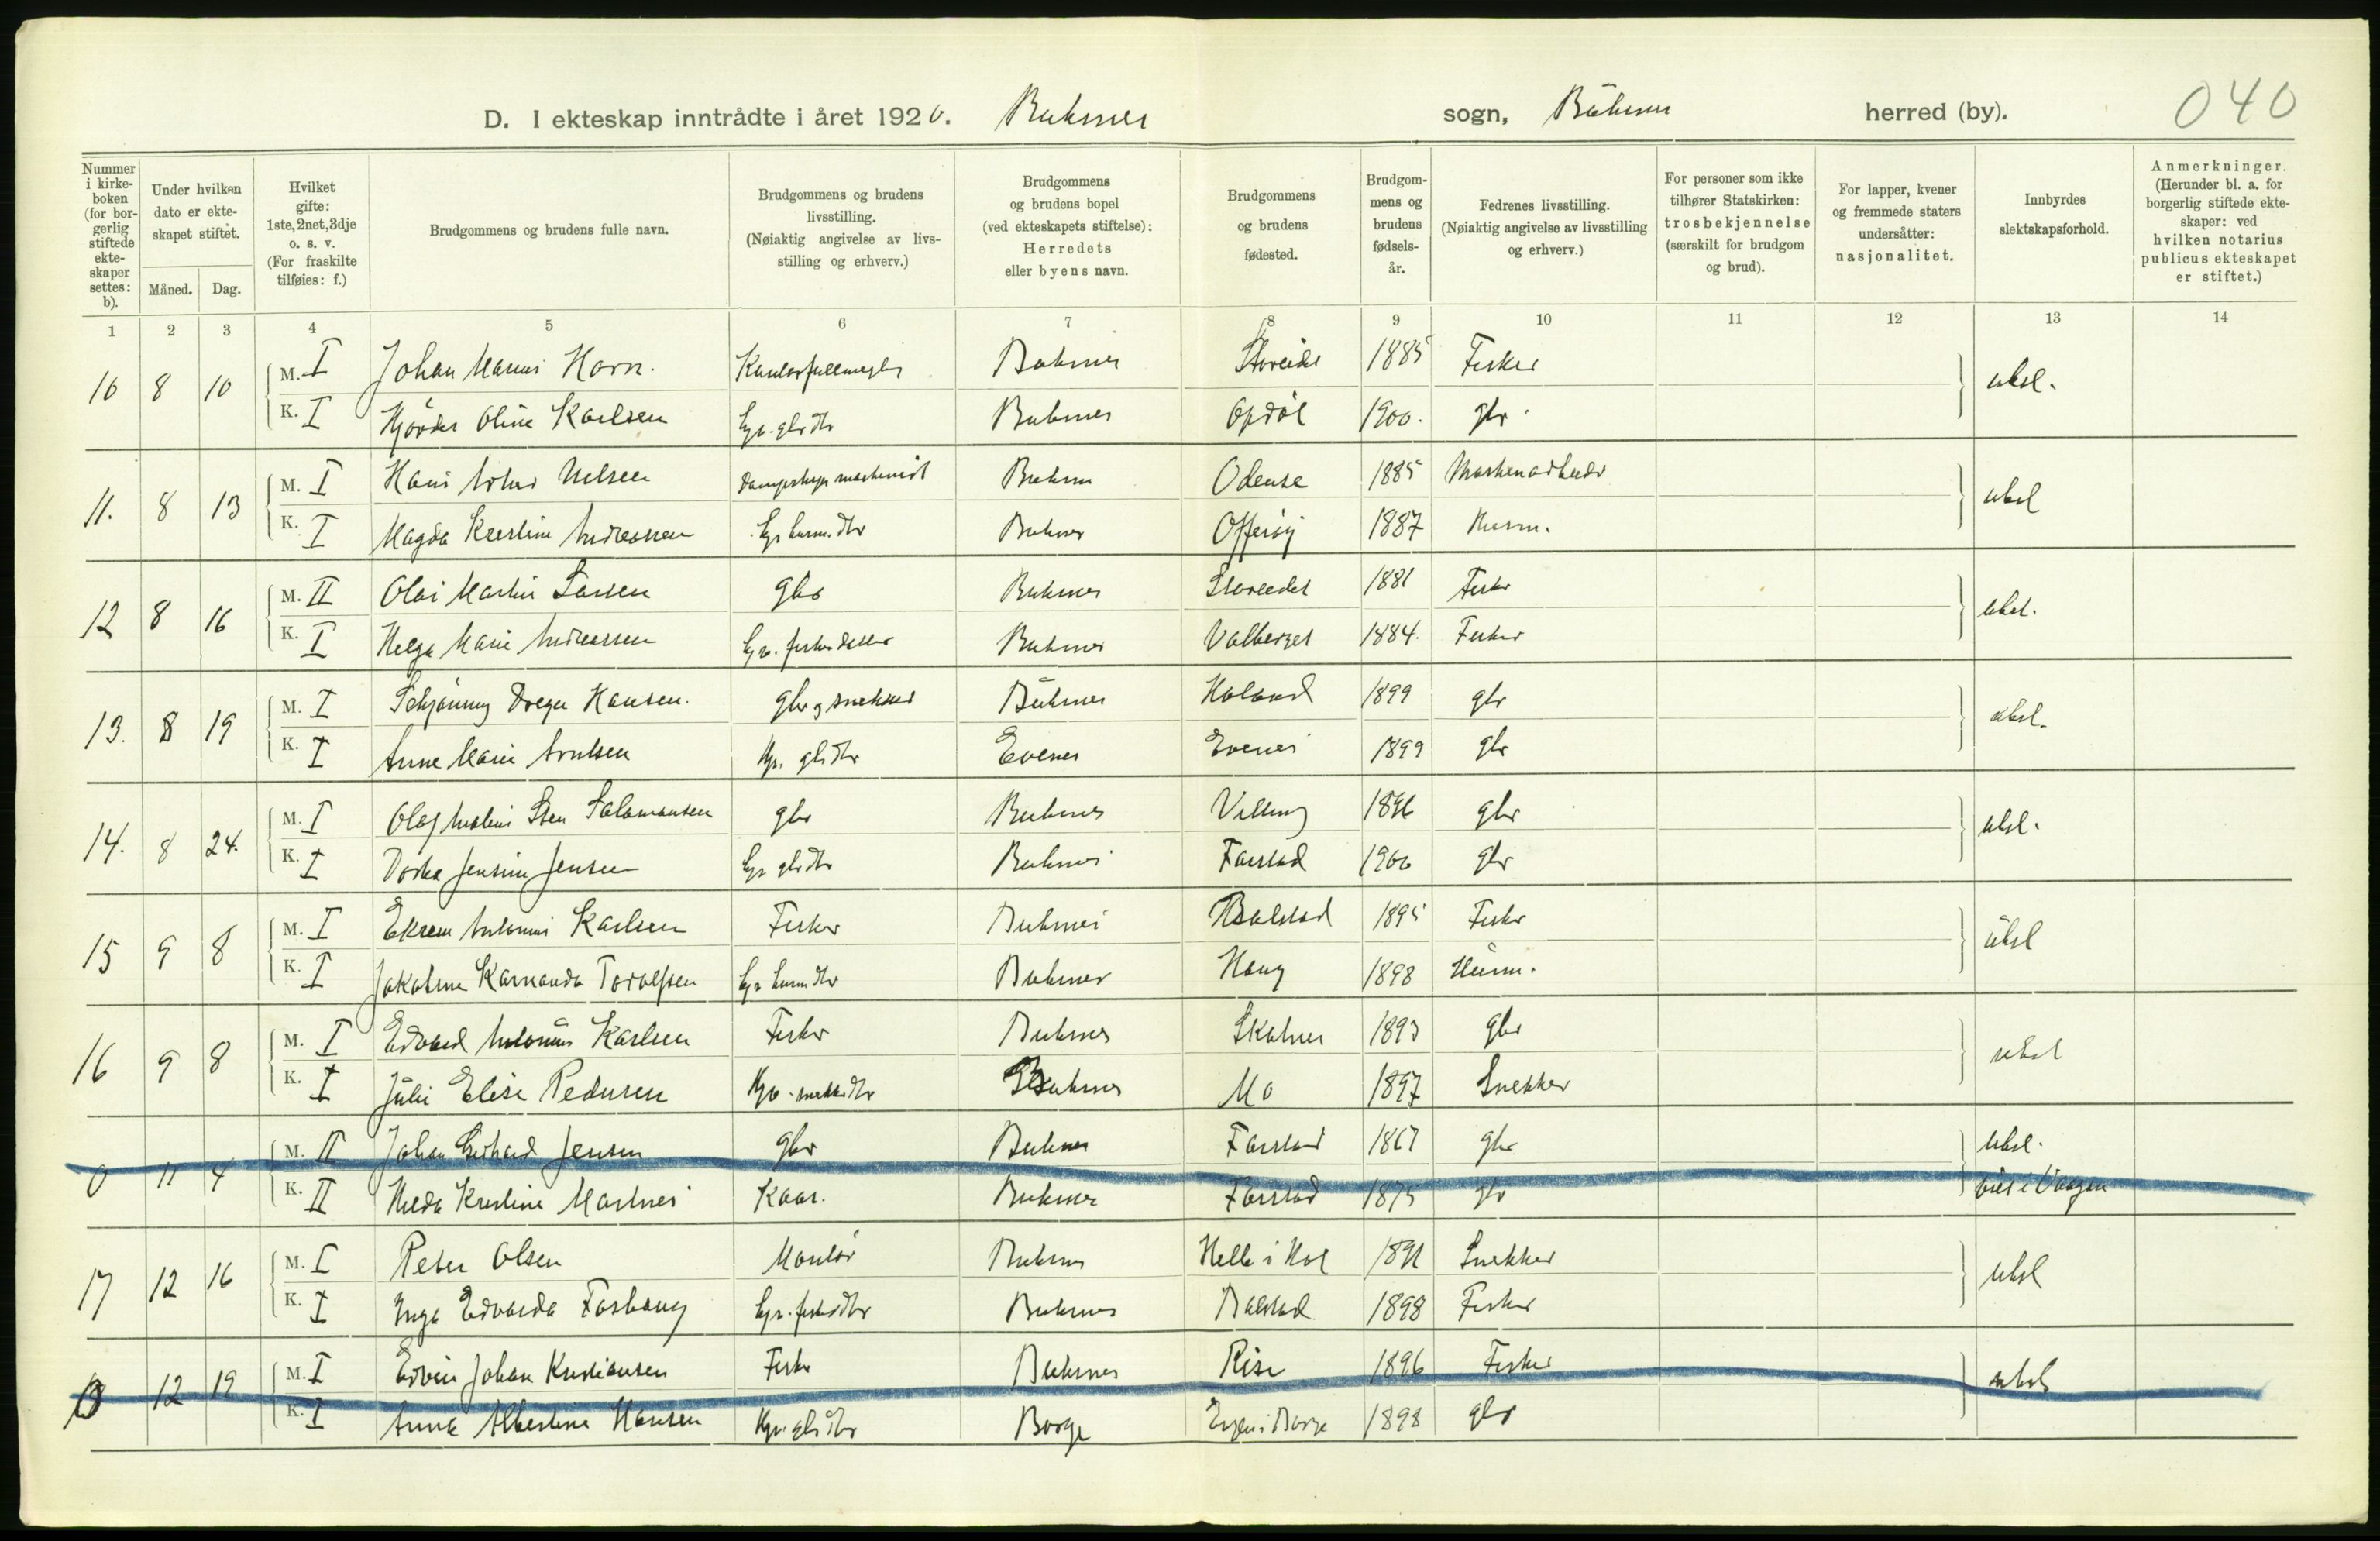 D. I ekteskap inntrådte i året 1920. Buksnes sogn, Buksnes herred (by). 040
Nummer i kirkeboken (for borgerlig stiftede ekteskaper settes: b).
Under hvilken dato er ekteskapet stiftet.
Måned. Dag.
Hvilket gifte: 1ste, 2net, 3dje o. s. v. (For fraskilte tilføies: f.)
Brudgommens og brudens fulle navn.
Brudgommens og brudens livsstilling. (Nøiaktig angivelse av livsstilling og erhverv.)
Brudgommens og brudens bopel (ved ekteskapets stiftelse): Herredets eller byens navn.
Brudgommens og brudens fødested.
Brudgommens og brudens fødselsår.
Fedrenes livsstilling. (Nøiaktig angivelse av livsstilling og erhverv.)
For personer som ikke tilhører Statskirken: trosbekjennelse (særskilt for brudgom og brud).
For lapper, kvener og fremmede staters undersåtter: nasjonalitet.
Innbyrdes slektskapsforhold.
Anmerkninger. (Herunder bl. a. for borgerlig stiftede ekteskaper: ved hvilken notarius publicus ekteskapet er stiftet.)
1 2 3 4 5 6 7 8 9 10 11 12 13 14
10 8 10 M. I Johan Marius Horn. Kontorfullmegtig Buksnes Storeide 1885 Fisker ubsl.
K. I Hjørdis Oline Karlsen Buksnes Opdøl 1900. gbr.
11. 8 13 M. I Hans Nilsen Buksnes Odense 1885 ubsl
K. I Magda Kristine Andreassen Buksnes Offersøy 1887 Husm.
12 8 16 M. II Olai Martin Larsen gbr Buksnes Storeidet 1881 Fisker ubsl.
K. I Helga Marie Andreassen Buksnes Valberget 1884. Fisker
13. 8 19 M. I Schjønning Hansen. gbr og snekker Buksnes Holand 1899 gbr ubsl.
K. I Anne Marie Arntsen Evenes Evenes 1899 gbr
14. 8 24. M. I Olaf Sten Salamonsen gbr Buksnes 1896 gbr ubsl.
K. I Dorthea Jensine Jensen Buksnes Farstad 1900 gbr
15 9 8 M. I Antonius Karlsen Fisker Buksnes Balstad 1895 Fisker ubsl
K. I Jakobine Karnanda Torolfsen Buksnes Haug 1898 Husm.
16 9 8 M. I Edvard Antonius Karlsen Fisker Buksnes Skotnes 1893 gbr ubsl
K. I Julie Elise Pedersen Buksnes Mo 1897 Snekker
0 11 4 M. II Johan Gerhard Jensen gbr Buksnes Farstad 1867 gbr ubsl.
K. II Hilda Kristine Buksnes Farstad 1875 gbr viet i Vaagan
17 12 16 M. I Peter Olsen Montør Buksnes Helle i Hol 1891 Snekker ubsl
K. I Inga Edvarda Foshaug Buksnes Balstad 1898 Fisker
0 12 19 M. I Edvin Johan Kristiansen Fisker Buksnes Rise 1896 Fisker ubsl
K. I Anna Albertine Hansen Borge 1898 gbr